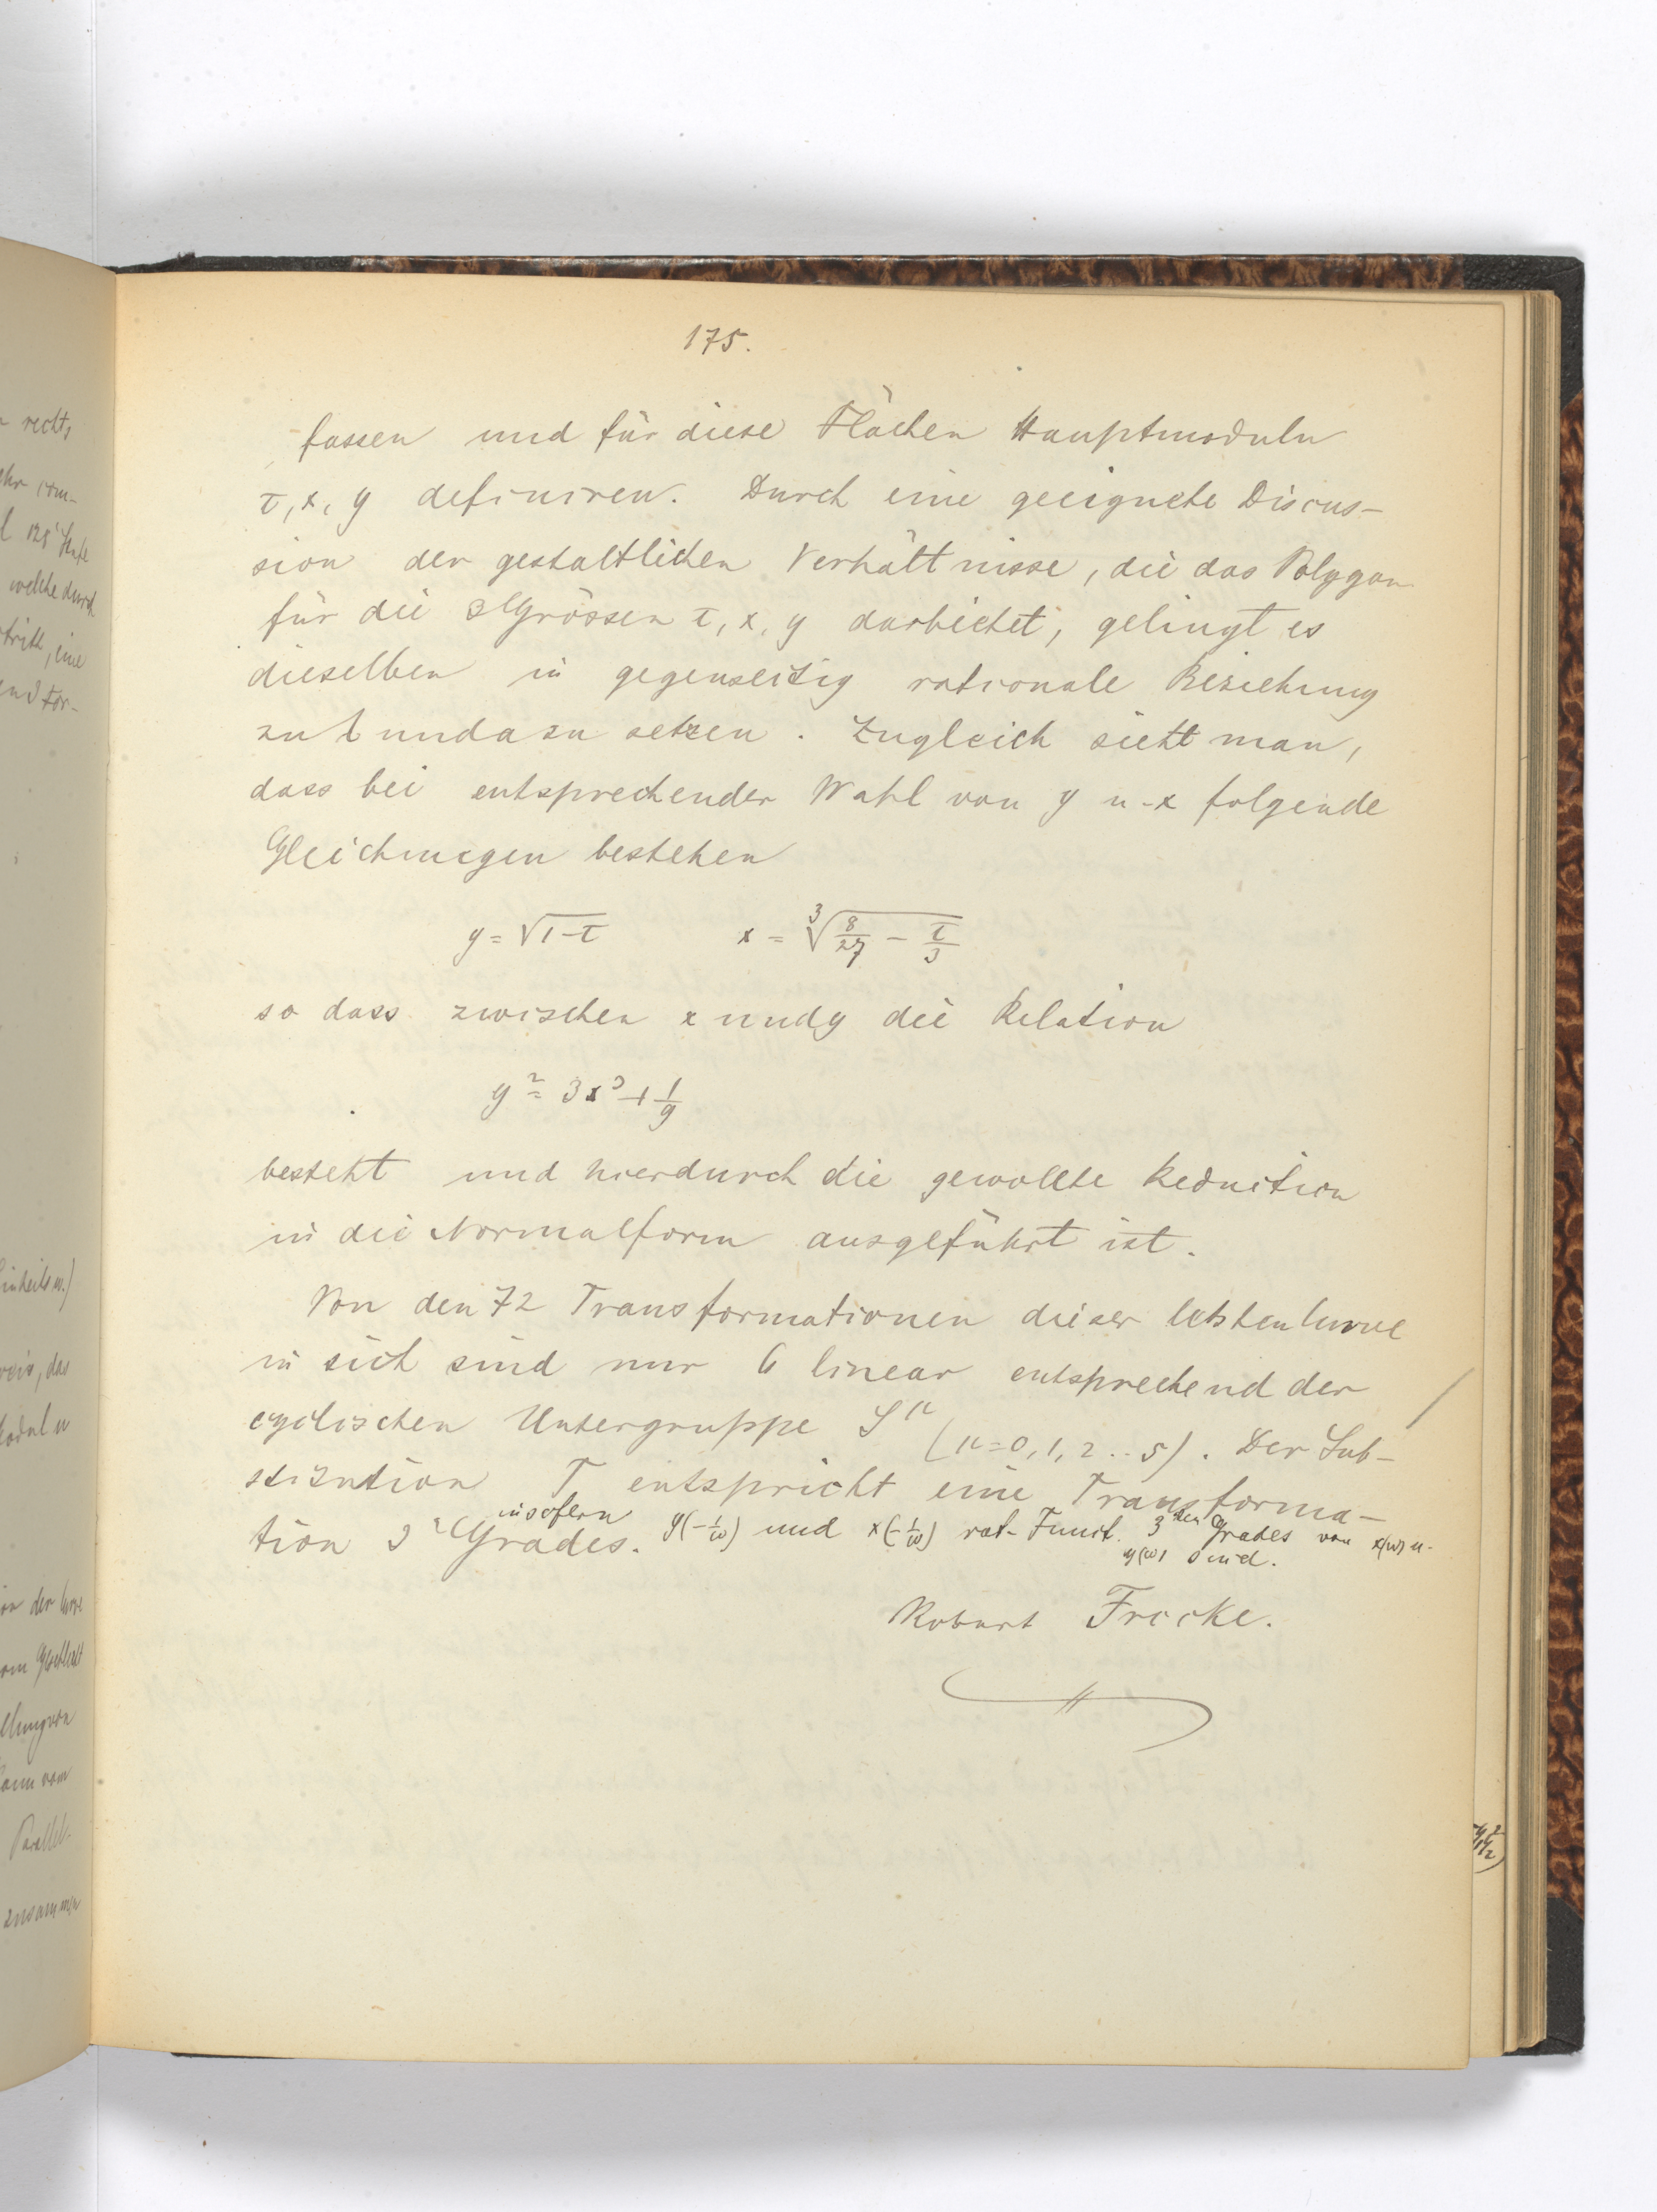 175.
fassen und für diese Flächen Hauptmoduln
τ, x, y definiren. Durch eine geeignete Discus-
sion der gestaltlichen Verhältnisse, die das Polygon
für die 3 Grössen τ, x, y darbietet, gelingt es
dieselben in gegenseitig rationale Beziehung
zu und zu setzen. Zugleich sieht man,
dass bei entsprechender Wahl von y u. x folgende
Gleichungen bestehen
y = √(1-τ) x = ∛(8/27 - τ/3)
so dass zwischen x und y die Relation
y² = 3x³ + 1/9
besteht und hierdurch die gewollte Reduction
in die Normalform ausgeführt ist.
Von den 72 Transformationen dieser letzten Curve
in sich sind nur 6 linear entsprechend der
cyclischen Untergruppe S^μ (μ=0,1,2..5). Der Sub-
stitution T entspricht eine Transforma-
tion 3^r Grades. insofern y(-1/ω) und x(-1/ω) rat. Funct. 3^ten Grades von x(ω) u.
y(ω) sind.
Robert Fricke.
rechts
welche durch
eine
das
zusammen